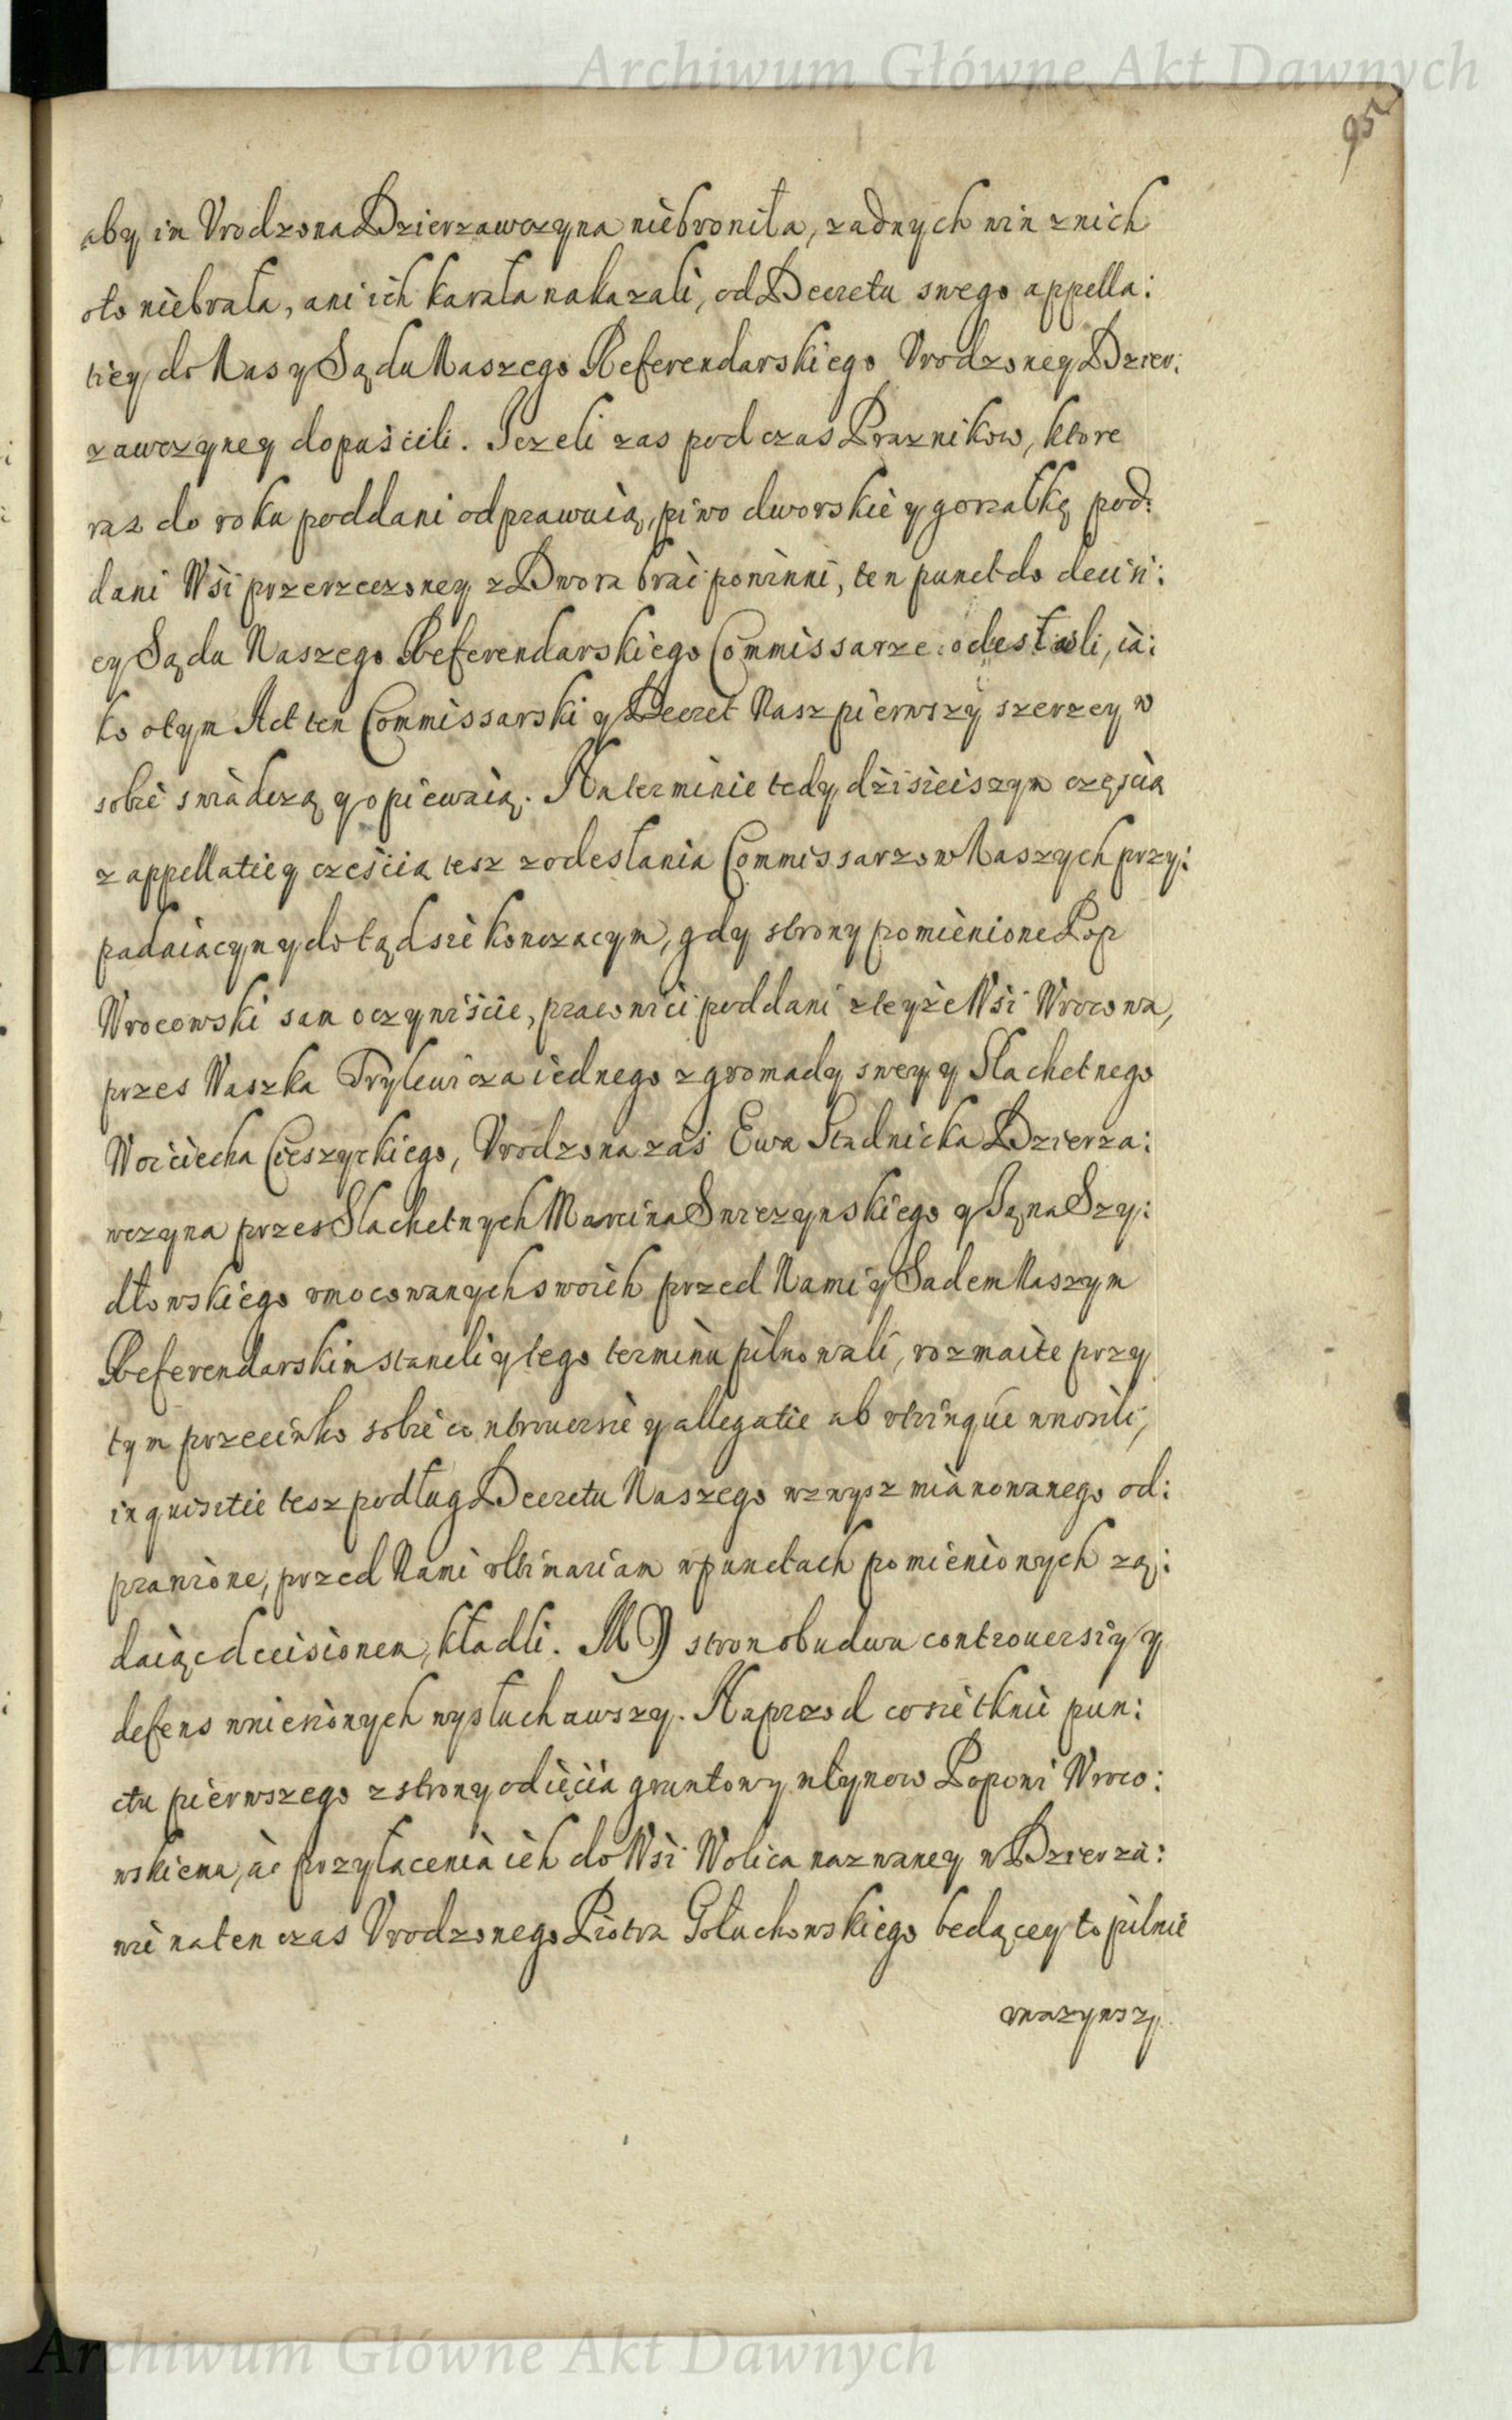 Archiwum Główne Akt Dawnych
95
aby im Vrodzona Dzierzawczyna niebroniła, zadnych win znich
oto niebrała, ani ich karała nakazali, od Decretu swego appella:
tiey do Nas y Sądu Naszego Referendarskiego Vrodzoney Dzier:
zawczyney dopuścili. Jezeli zas podczas Praznikow, ktore
raz do roku poddani odprawuią, piwo dworskie y gorzałkę pod:
dani Wsi przerzeczoney z Dwora brać powinni, ten punct do decisi:
ey Sądu Naszego Referendarskiego Commissarze odesłali, ia:
ko otym Act ten Commissarski y Decret Nasz pierwszy szerzey w
sobie swiadczą y opiewaią. Na terminie tedy dzisieiszym częścią
z appellatiey cześcią tesz z odesłania Commissarzow Naszych przy:
padaiącym y dotąd sie konczacym, gdy strony pomienione Pop
Wrocowski sam oczywiście, pracowici poddani z teyże Wsi Wrocowa,
przes Waszka Trylewicza iednego z gromady swey y Slachetnego
Woiciecha Cieszyckiego, Vrodzona zaś Ewa Stadnicka Dzierza:
wczyna przes Slachetnych Marcina Swiezynskiego y Jana Szy:
dłowskiego vmocowanych swoich przed Nami y Sadem Naszym
Referendarskim staneli y tego terminu pilnowali, rozmaite przy
tym przeciwko sobie controuersie y allegatie ab vtrinque wnosili,
inquisitie tesz podług Decretu Naszego wzwysz mianowanego od:
prawione, przed Nami vltimariam w punctach pomienionych żą:
daiąc decisionem, kładli. MY stron obudwu controuersiy y
defens wniesionych wysłuchawszy. Naprzod co sie tknie pun:
ctu pierwszego z strony odięcia gruntow y młynow Popowi Wroco:
wskiemu, á przyłacenia ich do Wsi Wolica nazwaney w Dzierza:
wie naten czas Vrodzonego Piotra Gołuchowskiego bedącey to pilnie
vwazywszy
Archiwum Główne Akt Dawnych